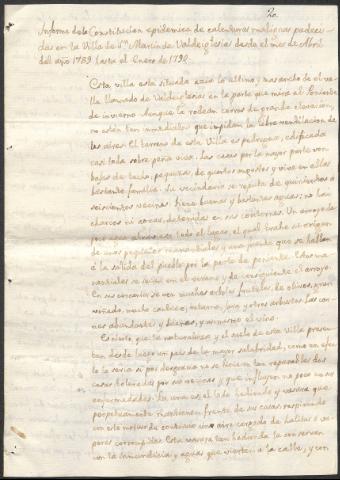 20
Informe de la Constitucion epidemica de calenturas malignas padeci-
das en la Villa de Sn. Martin de Valdeiglesias desde el mes de Abril
del año 1789 hasta el Enero de 1790.
Esta villa esta situada acia lo ultimo y mas ancho de el va-
lle llamado de Valdeiglesias en la parte que mira al Poniente
de invierno. Aunque la rodean cerros de grande elevacion,
no estan tan inmediatos que impidan la libre ventilacion de
los aires. El terreno de esta Villa es pedregoso, edificada
casi toda sobre peña viva. Las casas por la mayor parte son
bajas de techo, pequeñas, de quartos angostos y vive en ellas
bastante familia. Su vecindario se reputa de quinientos a
seiscientos vecinos. Tiene buenas y bastantes aguas; no hai
charcos ni pozas detenidas en sus contornos. Un arroyo
que atraviesa todo el lugar, el qual trahe su origen
de unos pequeños manantiales y una fuente que se hallan
a la salida del pueblo por la parte de poniente. Estos ma-
nantiales se secan en el verano y de consiguiente el arroyo.
En sus cercanias se ven muchos arboles frutales, de olivos, gran
viñedo, mucho cantueso, retama, jara y otros arbustos. Las car-
nes abundantes y buenas, y asimismo el vino.
Es cierto, que la naturaleza y el suelo de esta Villa presen-
tan desde luego un pais de la mayor salubridad, como en efec-
to lo seria si por desgracia no se hicieran tan reparables dos
cosas toleradas por sus vecinos y que influyen no poco en sus
enfermedades. La una es el lodo hediondo y basura que
perpetuamente mantienen frente de sus casas respirando
con este motivo de continuo un aire cargado de halitos o va-
pores corrompidos. Esta basura tan hedionda la conservan
con la inmundicia y aguas que vierten a la calle, y con